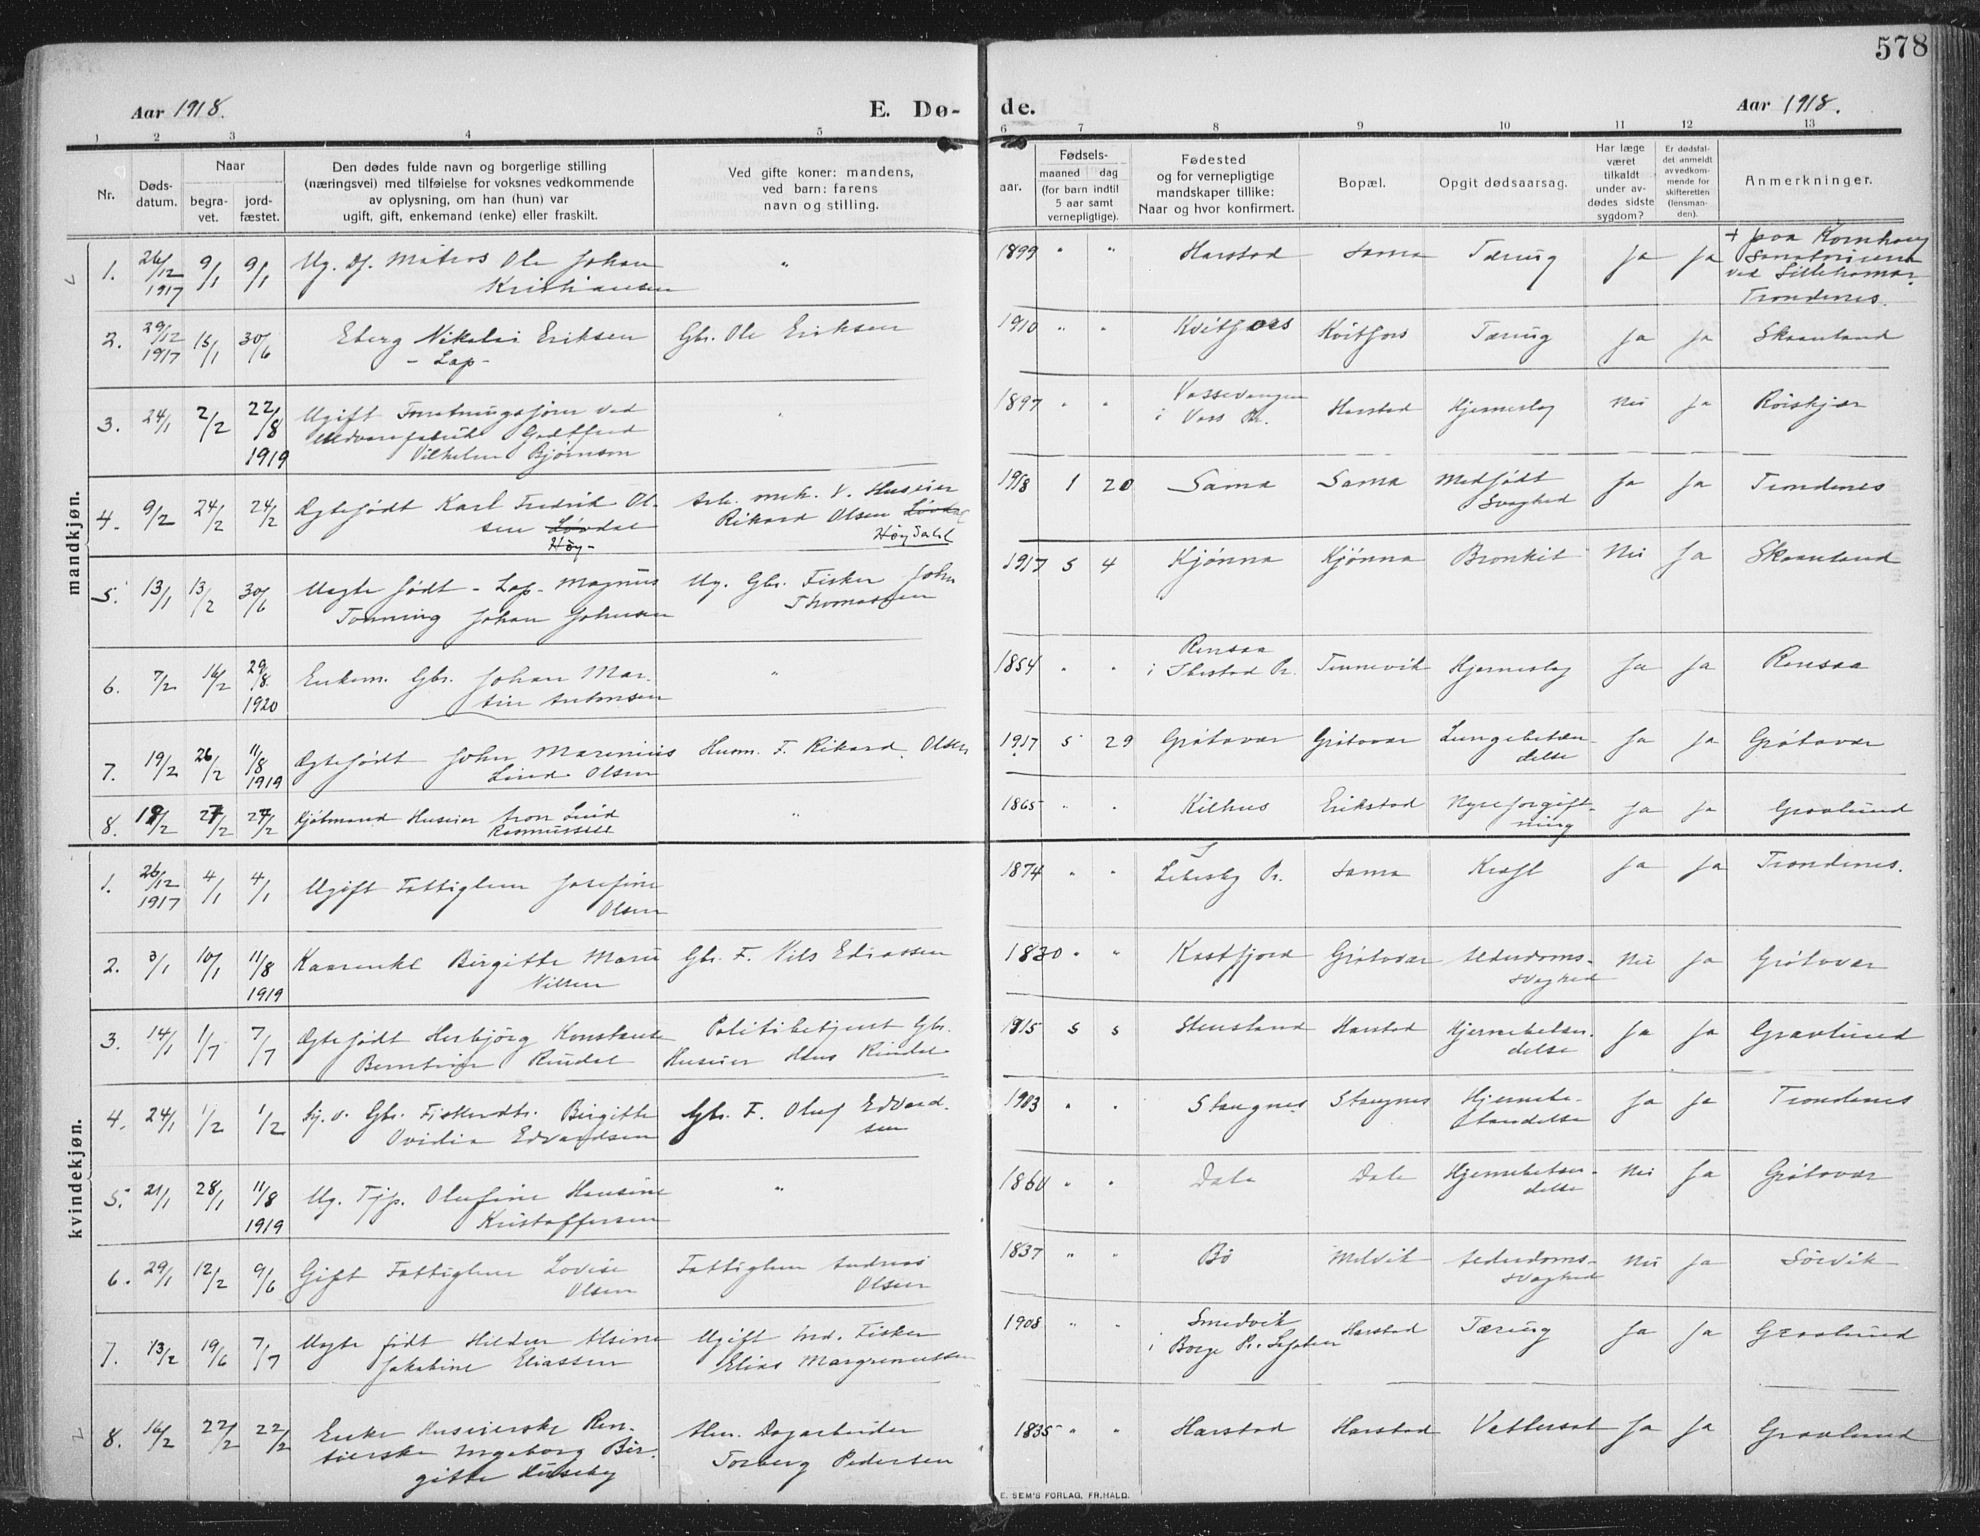 578
Aar 1918.
E. Dø-
de.
Aar 1918.
1 2 3 4 5 6 7 8 9 10 11 12 13
Nr.
Døds-
datum.
Naar
begra-
vet.
jord-
fæstet.
Den dødes fulde navn og borgerlige stilling
(næringsvei) med tilføielse for voksnes vedkommende
av oplysning, om han (hun) var
ugift, gift, enkemand (enke) eller fraskilt.
Ved gifte koner: mandens,
ved barn: farens
navn og stilling.
Fødsels-
aar.
maaned dag
(for barn indtil
5 aar samt
vernepligtige).
Fødested
og for vernepligtige
mandskaper tillike:
Naar og hvor konfirmert.
Bopæl.
Opgit dødsaarsag.
Har læge
været
tilkaldt
under av-
dødes sidste
sygdom?
Er dødsfal-
det anmeldt
av vedkom-
mende for
skifteretten
(lensman-
den).
Anmerkninger.
mandkjøn.
1. 26/12 1917 9/1 9/1 Ug. Df. Matros Ole Johan
Kristiansen " 1899 " " Harstad Sama Tæring Ja Ja + paa Kornhaug
Sanatorium
ved Lillehamar.
Trondenes.
2. 29/12 1917 15/1 30/6 Eberg Nikolai Eriksen
- Lap - Gbr. Ole Eriksen 1910 " " Kvitfors Kvitfors Tæring Ja Ja Skaanland
3. 24/1 2/2 22/8 1919 Ugift Forretningsfører ved
Uldvarefabrik Godtfred
Vilhelm Bjørnson 1897 " " Vossevangen
i Voss Pr. Harstad Hjerneslag Nei Ja Røiskjær
4. 9/2 24/2 24/2 Ægtefødt Karl Fredrik Ol-
sen Løvdal
Høy- Arb. mek. V. Huseier
Rikard Olsen Løvdal
Høydahl 1918 1 20 Sama Sama Medfødt
Svaghed Ja Ja Trondenes
5. 13/1 13/2 30/6 Uægte født - Lap - Magnus
Tonning Johan Johnsen Ug. Gbr. Fisker John
Thomassen 1917 5 4 Kjønna Kjønna Bronkit Nei Ja Skaanland
6. 7/2 16/2 29/8 1920 Enkem. Gbr. Johan Mar-
tin Antonsen " 1854 " " Rensaa
i Ibestad Pr. Tennevik Hjerneslag Ja Ja Rensaa
7. 19/2 26/2 11/8 1919 Ægtefødt John Marenius
Lind Olsen Husm. F. Rikard Olsen 1917 5 29 Grøtavær Grøtavær Lungebetæn-
delse Ja Ja Grøtavær
8. 19/2 27/2 27/2 Kjøbmand Huseier Aron Lind
Rasmussen " 1865 " " Kilhus Erikstad Nyreforgift-
ning Ja Ja Gravlund
kvindekjøn.
1. 26/12 1917 4/1 4/1 Ugift Fattiglem Josefine
Olsen 1874 " " Lebesby Pr. Sama Kræft Ja Ja Trondenes.
2. 3/1 10/1 11/8 1919 Kaarenke Birgitte Marie
Nilsen Gbr. F. Nils Ediassen 1830 " " Kastfjord Grøtavær Alderdoms-
svaghed Nei Ja Grøtavær
3. 14/1 1/7 7/7 Ægtefødt Herbjörg Konstanse
Berntine Rindal Politibetjent Gbr.
Huseier Hans Rindal 1915 5 5 Stensland Harstad Hjernebetæn-
delse Ja Ja Gravlund
4. 24/1 1/2 1/2 Sj. v. Gbr. Fiskerdtr. Birgitte
Ovidia Edvardsen Gbr. F. Oluf Edvard-
sen 1903 " " Stangnes Stangnes Hjernebe-
tændelse Ja Ja Trondenes
5. 21/1 28/1 11/8 1919 Ug. Tjp. Olufine Hansine
Kristoffersen " 1860 " " Dale Dale Hjernebetæn-
delse Nei Ja Grøtavær
6. 29/1 12/2 9/6 Gift Fattiglem Lovise
Olsen Fattiglem Andreas
Olsen 1837 " " Bø Melvik Alderdoms-
svaghed Nei Ja Sørvik
7. 13/2 19/6 7/7 Uægte født Hildur Alsine
Jakobine Eliassen Ugift Ind. Fisker
Elias Margrenussen 1908 " " Smedvik
i Borge Pr. Lofoten Harstad Tæring Ja Ja Gravlund
8. 16/2 22/2 22/2 Enke Huseierske Ren-
tierske Ingeborg Bir-
gitte Huseby Dagarbeider
Torberg Pedersen 1835 " " Harstad Harstad Vattersot Ja Ja Gravlund
E. SEM'S FORLAG, FR.HALD.